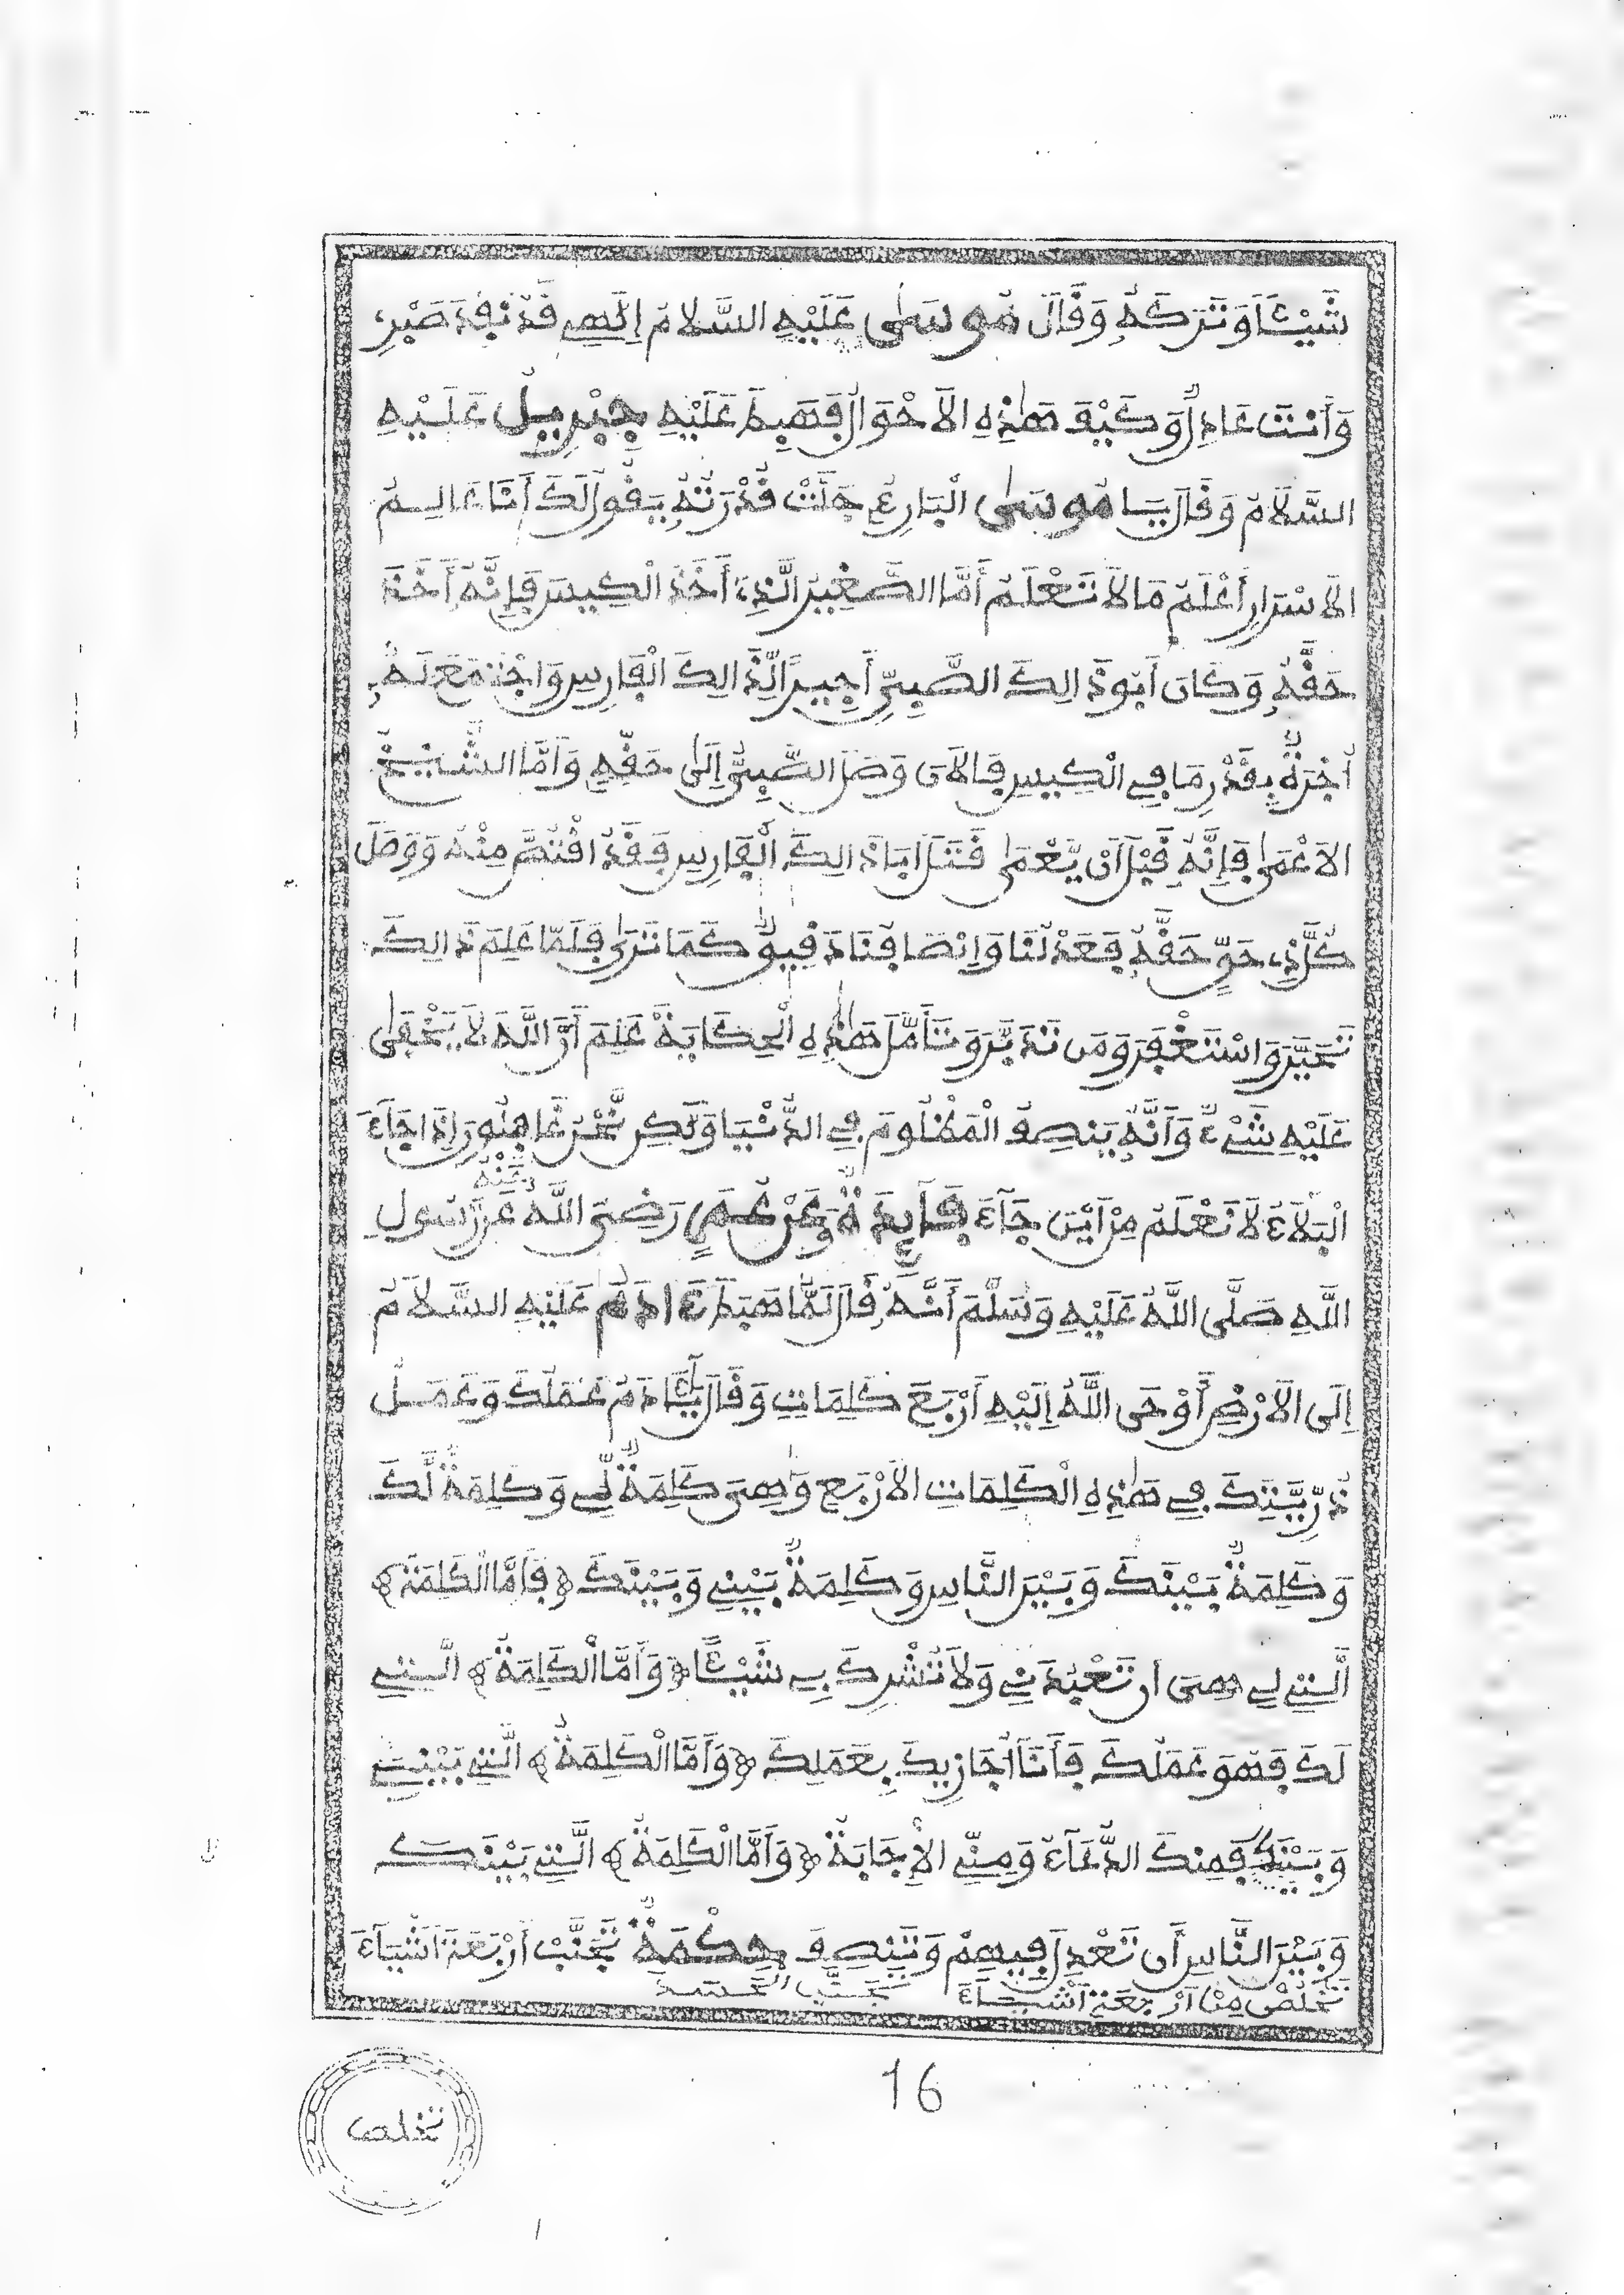 شَيْئًا وَتَرَكَهُ وَقَالَ مُوسَىٰ عَلَيْهِ السَّلَامُ إِلَٰهِي قَدْ نَفِدَ صَبْرِي
وَأَنْتَ عَادِلٌ وَكَيْفَ هَٰذِهِ الْأَحْوَالُ فَهَبَطَ عَلَيْهِ جِبْرِيلُ عَلَيْهِ
السَّلَامُ وَقَالَ يَا مُوسَىٰ الْبَارِئُ جَلَّتْ قُدْرَتُهُ يَقُولُ لَكَ أَنَا عَالِمُ
الْأَسْرَارِ أَعْلَمُ مَا لَا تَعْلَمُ أَمَّا الصَّغِيرُ الَّذِي أَخَذَ الْكِيسَ فَإِنَّهُ أَخَذَ
حَقَّهُ وَكَانَ أَبُو ذَالِكَ الصَّبِيِّ أَجِيرًا لِّذَالِكَ الْفَارِسِ وَاجْتَمَعَ لَهُ
أُجْرَةٌ بِقَدْرِ مَا فِي الْكِيسِ فَالْآنَ وَصَلَ الصَّبِيُّ إِلَىٰ حَقِّهِ وَأَمَّا الشَّيْخُ
الْأَعْمَىٰ فَإِنَّهُ قَبْلَ أَنْ يَّعْمَىٰ قَتَلَ أَبَا ذَالِكَ الْفَارِسِ فَقَدْ اقْتُصَّ مِنْهُ وَوَصَلَ
كُلُّ ذِي حَقٍّ حَقَّهُ فَعَدْلُنَا وَإِنْصَافُنَا دَقِيقٌ كَمَا تَرَىٰ فَلَمَّا عَلِمَ ذَالِكَ
تَحَيَّرَ وَاسْتَغْفَرَ وَمَن تَدَبَّرَ وَتَأَمَّلَ هَٰذِهِ الْحِكَايَةَ عَلِمَ أَنَّ اللَّهَ لَا يَخْفَىٰ
عَلَيْهِ شَيْءٌ وَأَنَّهُ يَنْصِفُ الْمَظْلُومَ فِي الدُّنْيَا وَلَٰكِن نَّحْنُ غَافِلُونَ إِذَا جَاءَ
الْبَلَاءُ لَا نَعْلَمُ مِنْ أَيْنَ جَاءَ فَائِدَةٌ وَعَنْ عُمَرَ رَضِيَ اللَّهُ عَنْهُ عَن رَّسُولِ
اللَّهِ صَلَّى اللَّهُ عَلَيْهِ وَسَلَّمَ أَنَّهُ قَالَ لَمَّا هَبَطَ ءَادَمُ عَلَيْهِ السَّلَامُ
إِلَى الْأَرْضِ أَوْحَى اللَّهُ إِلَيْهِ أَرْبَعَ كَلِمَاتٍ وَقَالَ يَا ءَادَمُ عَمَلُكَ وَعَمَلُ
ذُرِّيَّتِكَ فِي هَٰذِهِ الْكَلِمَاتِ الْأَرْبَعِ وَهِيَ كَلِمَةٌ لِّي وَكَلِمَةٌ لَّكَ
وَكَلِمَةٌ بَيْنَكَ وَبَيْنَ النَّاسِ وَكَلِمَةٌ بَيْنِي وَبَيْنَكَ ﴿فَأَمَّا الْكَلِمَةُ﴾
الَّتِي لِي هِيَ أَن تَعْبُدَنِي وَلَا تُشْرِكَ بِي شَيْئًا ﴿وَأَمَّا الْكَلِمَةُ﴾ الَّتِي
لَكَ فَهُوَ عَمَلُكَ فَأَنَا أُجَازِيكَ بِعَمَلِكَ ﴿وَأَمَّا الْكَلِمَةُ﴾ الَّتِي بَيْنِي
وَبَيْنَكَ فَمِنْكَ الدُّعَاءُ وَمِنِّي الْإِجَابَةُ ﴿وَأَمَّا الْكَلِمَةُ﴾ الَّتِي بَيْنَكَ
وَبَيْنَ النَّاسِ أَن تَعْدِلَ فِيهِمْ وَتَنْصِفَ حِكْمَةٌ تَجَنَّبْ أَرْبَعَةَ أَشْيَاءَ
تَخْلُصْ مِنْ أَرْبَعَةِ أَشْيَاءَ تَجَنَّبِ الْحَسَدَ
16
تخلص